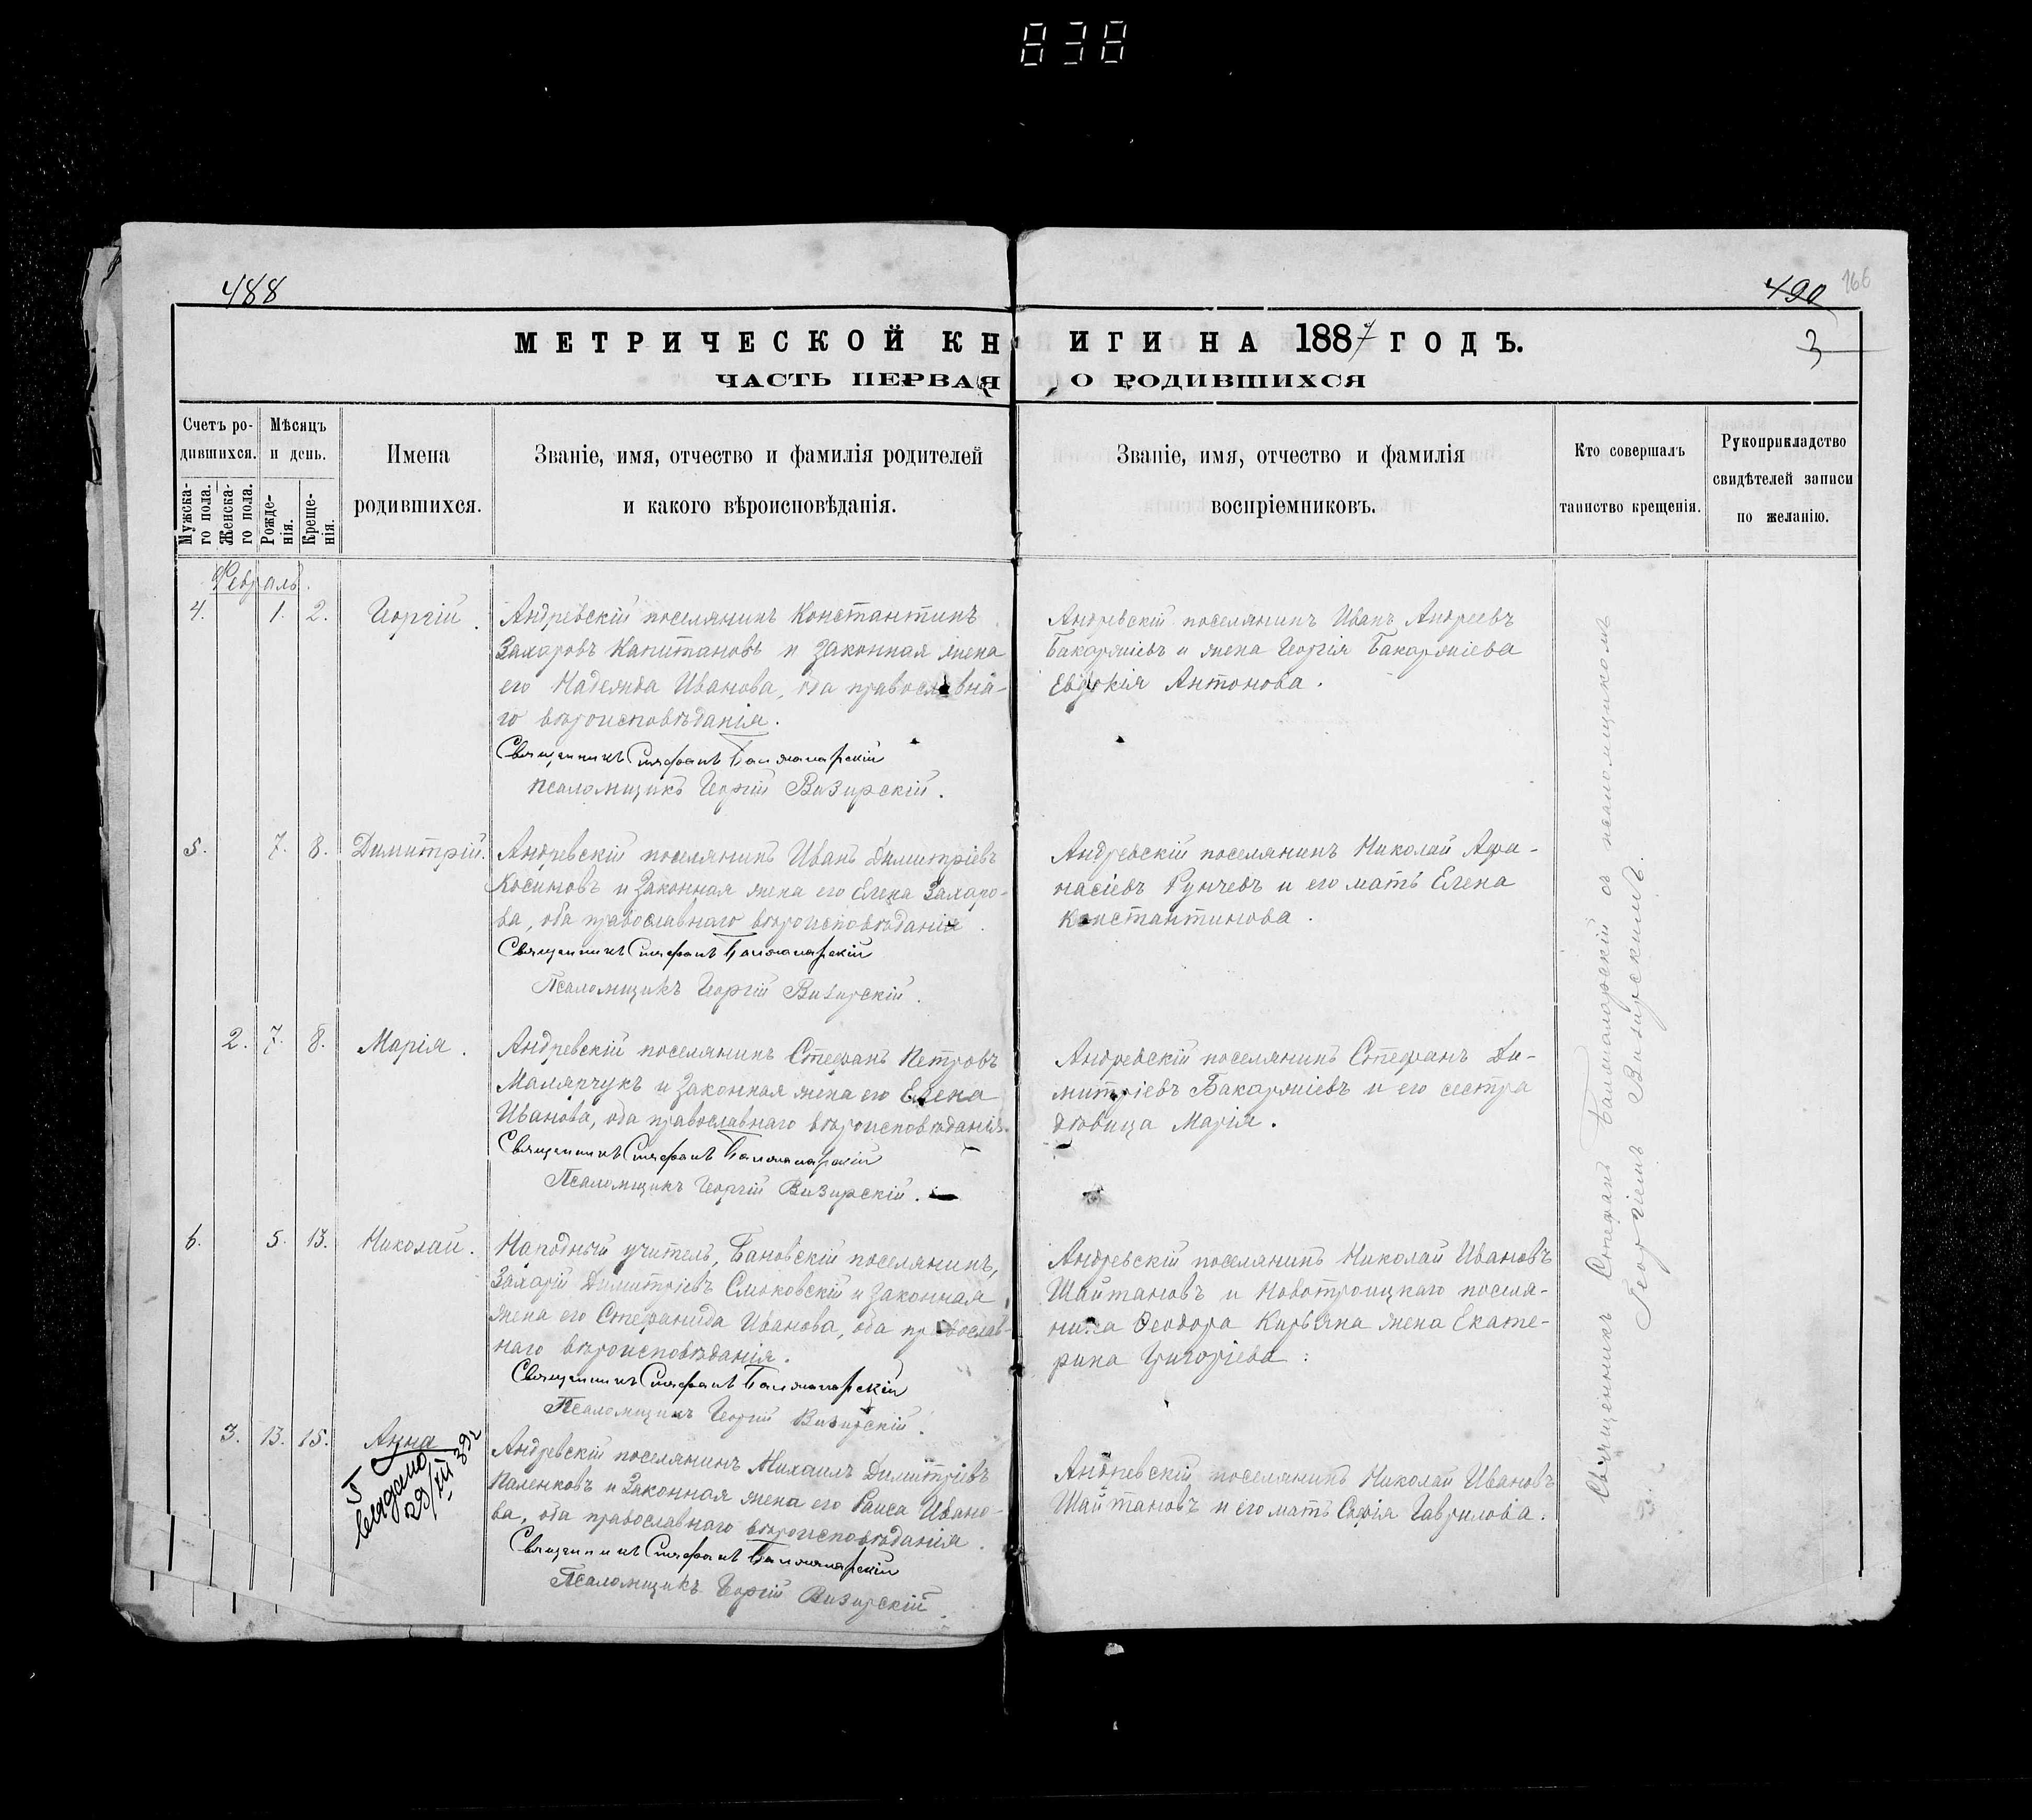 838
488
490
166
3
МЕТРИЧЕСКОЙ КНИГИ НА 1887 ГОДЪ.
ЧАСТЬ ПЕРВАЯ, О РОДИВШИХСЯ
Счетъ родившихся.
Мужскаго пола.
Женскаго пола.
Мѣсяцъ и день.
Рожденія.
Крещенія.
Имена
родившихся.
Званіе, имя, отчество и фамилія родителей
и какого вѣроисповѣданія.
Званіе, имя, отчество и фамилія
воспріемниковъ.
Кто совершалъ
таинство крещенія.
Рукоприкладство
свидѣтелей записи
по желанію.
Февраль.
4. 1. 2. Георгій.
Андревскій поселянинъ Константинъ
Захаровъ Капитановъ и законная жена
его Надежда Иванова, оба православна-
го вѣроисповѣданія.
Священникъ Стефанъ Балжаларскій
Псаломщикъ Георгій Визирскій.
Андревскій поселянинъ Иванъ Андреевъ
Бакаржіевъ и жена Георгія Бакаржіева
Евдокія Антонова.
5. 7. 8. Димитрій.
Андревскій поселянинъ Иванъ Димитріевъ
Косиновъ и законная жена его Елена Захаро-
ва, оба православнаго вѣроисповѣданія.
Священникъ Стефанъ Балжаларскій
Псаломщикъ Георгій Визирскій.
Андревскій поселянинъ Николай Афа-
насіевъ Рунчевъ и его мать Елена
Константинова.
2. 7. 8. Марія.
Андревскій поселянинъ Стефанъ Петровъ
Малярчукъ и законная жена его Елена
Иванова, оба православнаго вѣроисповѣданія.
Священникъ Стефанъ Балжаларскій
Псаломщикъ Георгій Визирскій.
Андревскій поселянинъ Стефанъ Ди-
митріевъ Бакаржіевъ и его сестра
дѣвица Марія.
6. 5. 13. Николай.
Народный учитель, Бановскій поселянинъ,
Захарій Димитріевъ Смоковскій и законная
жена его Стефанида Иванова, оба православ-
наго вѣроисповѣданія.
Священникъ Стефанъ Балжаларскій
Псаломщикъ Георгій Визирскій.
Андревскій поселянинъ Николай Ивановъ
Шайтановъ и Новотроицкаго поселя-
нина Ѳеодора Кирьяна жена Екате-
рина Григоріева:
3. 13. 15. Анна
29/XII 39г
Андревскій поселянинъ Михаилъ Димитріевъ
Паленковъ и законная жена его Раиса Ивано-
ва, оба православнаго вѣроисповѣданія.
Священникъ Стефанъ Балжаларскій
Псаломщикъ Георгій Визирскій.
Андревскій поселянинъ Николай Ивановъ
Шайтановъ и его мать Софія Гаврилова.
Священникъ Стефанъ Балжаларскій съ псаломщикомъ
Георгіемъ Визирскимъ.